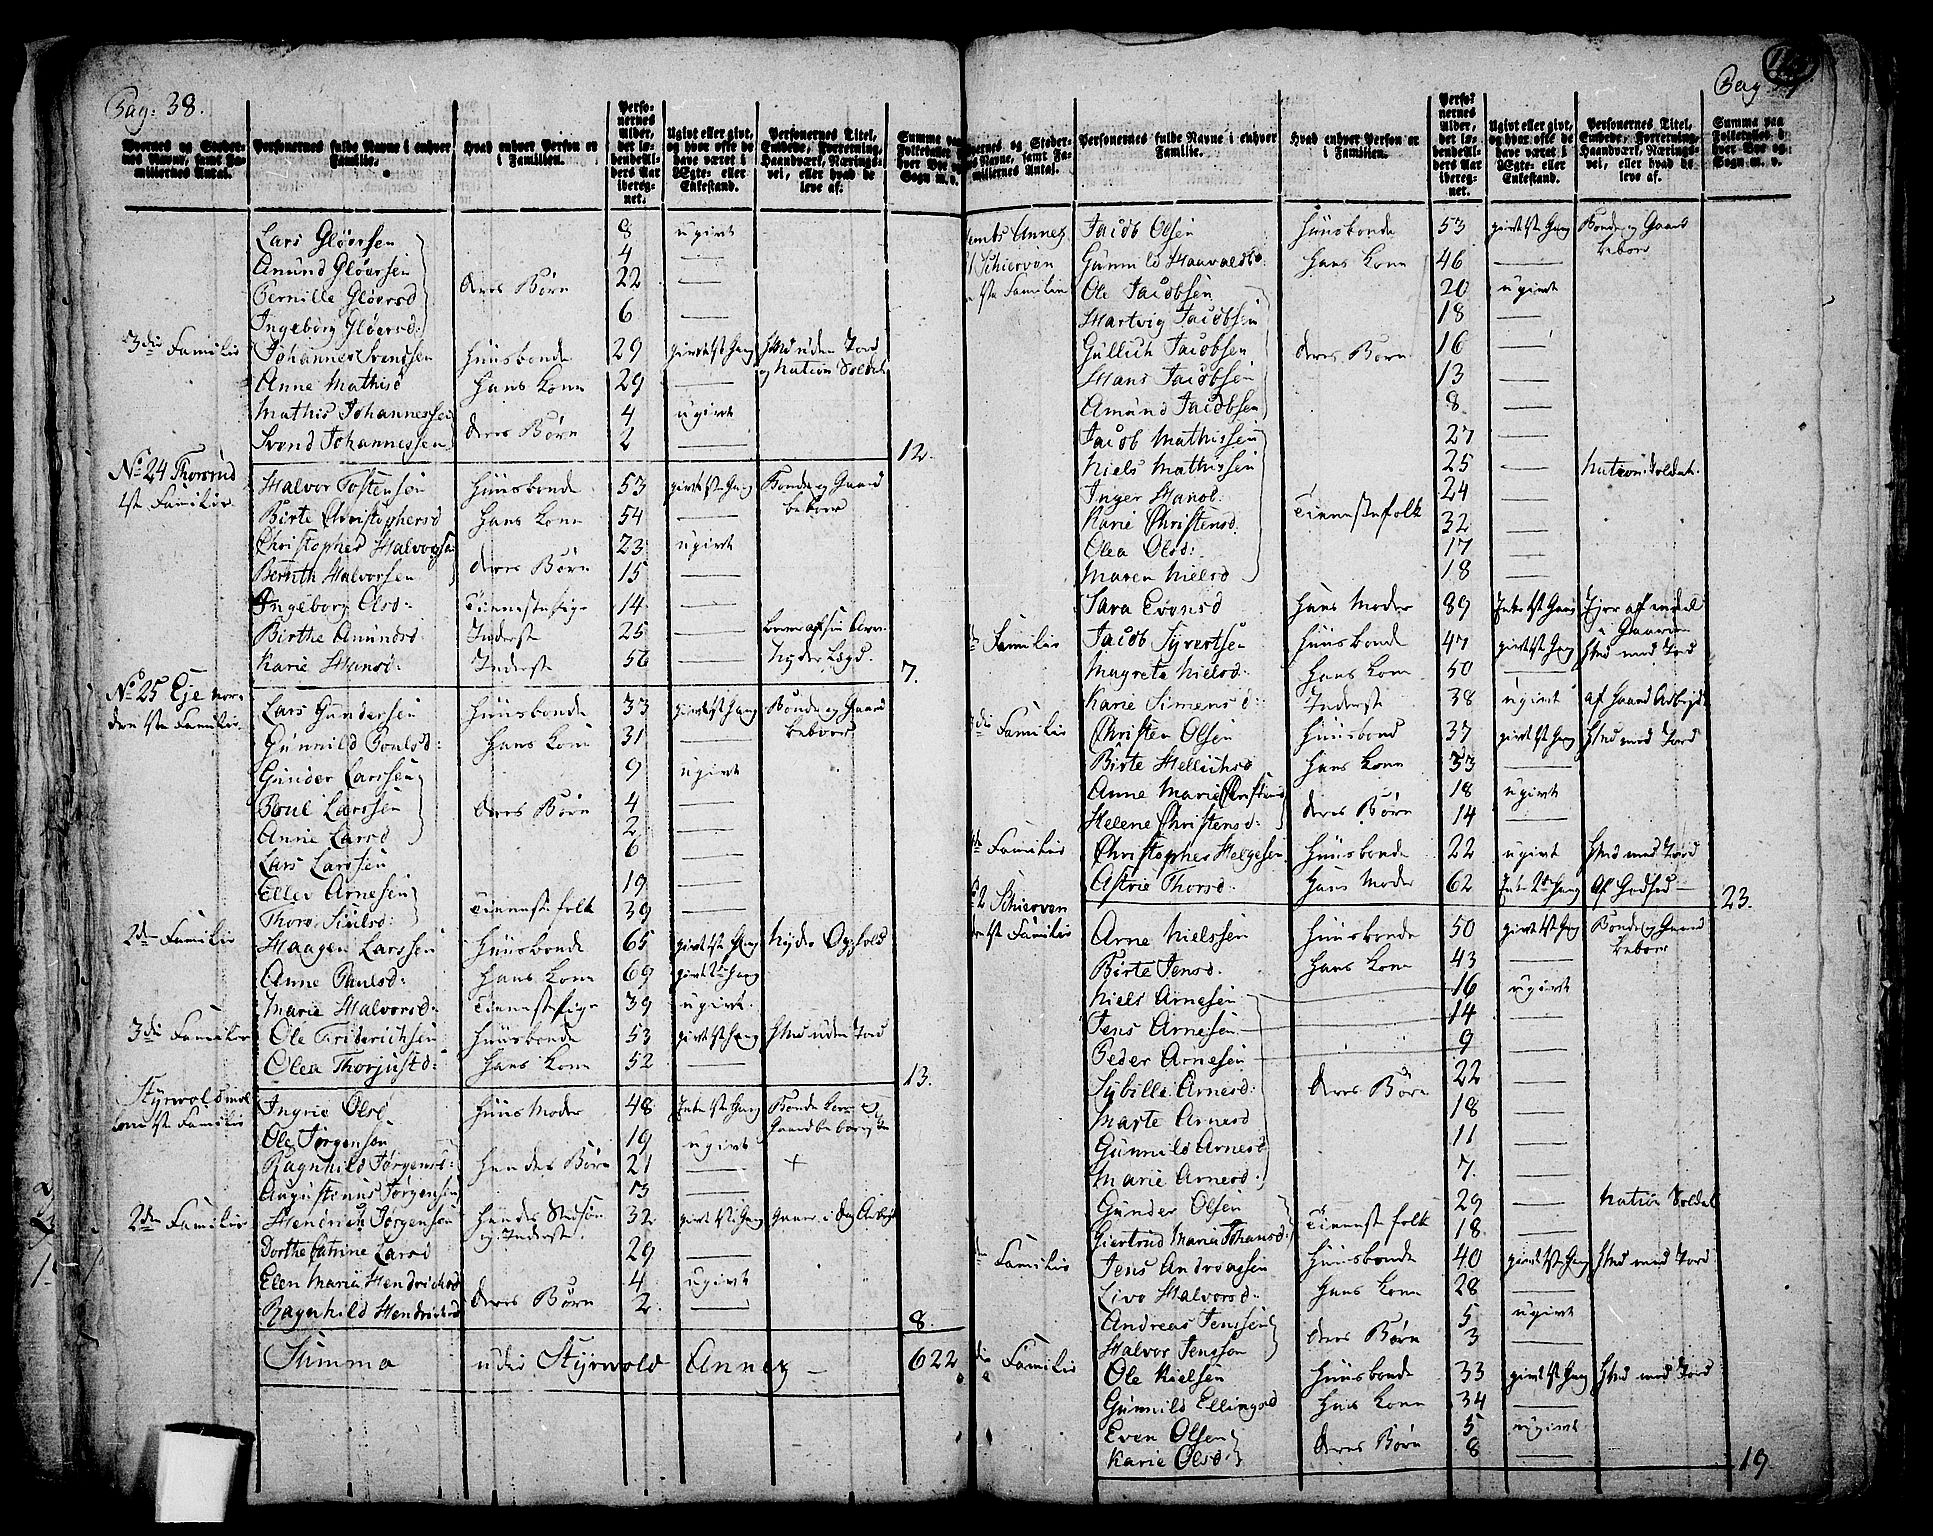 Pag: 38.
Byernes og Stedernes Navne, samt Familiernes Antal.
Personernes fulde Navne i enhver Familie.
Hvad enhver Person er i Familien.
Personernes Alder, det løbende Alders Aar iberegnet.
Ugivt eller givt, og hvor ofte de have været i Ægte- eller Enkestand.
Personernes Titel, Embede, Forretning, Haandværk, Næringsvei, eller hvad de leve af.
Summa paa Folketallet i hver Bye og Sogn m. v.
Lars Gløersen 8 ugivt
Amund Gløersen 4 —
Pernille Gløersd deres Børn 22 —
Ingeborg Gløersd: 6 —
3die Familie Johannes Svendsen Huusbonde 29 givt 1st Gang Hmd uden Jord og Nation Soldat
Anne Mathisd Hans Kone 29 —
Mathis Johannessen deres Børn 4 ugivt
Svend Johannessen 2 — 12.
No 24 Thorsrud 1ste Familie Halvor Tostensen Huusbonde 53 givt 1st Gang Bonde og Gaard beboer
Birte Christophersd Hans Kone 54 —
Christopher Halvorsen deres Børn 23 ugivt
Bernth Halvorsen 15 —
Ingeborg Olsd: Tienestepige 14 —
Birthe Amundsd Inderst 25 —
Karie Hansd: Inderst 56 — Nyder Lægd. 7.
No 25 Eje nordre 1ste Familie Lars Gundersen Huusbonde 33 givt 1st Gang Bonde og Gaard beboer
Gunnild Poulsd: Hans Kone 31 —
Gunder Larssen 9 ugivt
Poul Larssen deres Børn 4 —
Anne Larsd 2 —
Lars Larssen 6 —
Ellev Arnesen Tienestefolk 19 —
Thore Siulsd: 39 —
2den Familie Haagen Larssen Huusbonde 65 givt 1st Gang Nyder Ophold
Anne Paulsd: Hans Kone 69 givt 2den Gang
Marie Halvorsd: Tienestepige 39 ugivt.
3die Familie Ole Friderichsen Huusbonde 53 givt 1st Gang Hmd uden Jord
Olea Thorjusd: Hans Kone 52 — 13.
1ste Familie Ingrie Olsd Huus Moder 48 Enke 1ste Gang
Ole Jørgensen 19 ugivt
Ragnhild Jørgensd: Hendes Børn 21 — +
Augustinus Jørgensen 13 —
2den Familie Hendrich Jørgensen Hendes Stedsøn og Inderst. 32 givt 1st Gang
Dorthe Catrine Larsd 29 —
Elen Marie Hendrichsd deres Børn 4 ugivt
Ragnhild Hendrichsd 2. — 8.
Summa udi Styrvold Annex — 622
Pag
Byernes og Stedernes Navne, samt Familiernes Antal.
Personernes fulde Navne i enhver Familie.
Hvad enhver Person er i Familien.
Personernes Alder, det løbende Alders Aar iberegnet.
Ugivt eller givt, og hvor ofte de have været i Ægte- eller Enkestand.
Personernes Titel, Embede, Forretning, Haandværk, Næringsvei, eller hvad de leve af.
Summa paa Folketallet i hver Bye og Sogn m. v.
Annex Jacob Olsen Huusbonde 53 givt 1st Gang Bonde og Gaard beboer
Schierven Gunnild Haavalsd: Hans Kone 46 —
1ste Familie Ole Jacobsen 20 ugivt
Hartvig Jacobsen 18 —
Gullich Jacobsen deres Børn 16 —
Hans Jacobsen 13 —
Amund Jacobsen 8 —
Jacob Mathissen 27 —
Niels Mathissen 25 — Nation: Soldat.
Inger Hansd: 24 —
Karie Christensd. Tienestefolk 32 —
Olea Olsd: 17 —
Maren Nielsd 18 —
Sara Evensd Hans Moder 89 Enke 1st Gang
Familie Jacob Syvertsen Huusbonde 47 givt 1st Gang Hmd med Jord
Magrete Nielsd: Hans Kone 50 —
Karie Simensd: Inderst 38 ugivt af Haand Arbejde
3die Familie Christen Olsen Huusbond 37 givt 1st Gang Hmd med Jord
Birte Hellichsd Hans Kone 33 —
Anne Marie Christensd deres Børn 18 ugivt
Helene Christensd: 14 —
Familie Christopher Helgesen Huusbonde 22 ugivt Hmd med Jord
Astrie Thorsd: Hans Moder 62 Enke 2den Gang 23.
2 Schierven 1ste Familie Arne Nielssen Huusbonde 50 givt 1st Gang Bonde og Gaard beboer
Birte Jensd. Hans Kone 43 —
Niels Arnesen 16 ugivt
Jens Arnesen 14 —
Peder Arnesen 9 —
Sybille Arnesd: deres Børn 22 —
Marte Arnesd 18 —
Gunnild Arnesd 11 —
Marie Arnesd: 7. —
Gunder Olsen Tienestefolk 29 — Nation Soldat
Giertrud Maria Johansd: 18. —
Familie Jens Andreasen Huusbonde 40 givt 1st Gang Hmd med Jord
Live Halvorsd: Hans Kone 28 —
Andreas Jenssen deres Børn 5 ugivt
Halvor Jenssen 3 —
Familie Ole Nielsen Huusbonde 33 givt 1st Gang Hmd med Jord
Gunnild Ellingsd Hans Kone 34 —
Even Olsen deres Børn 5 ugivt
Karie Olsd 8 — 19.